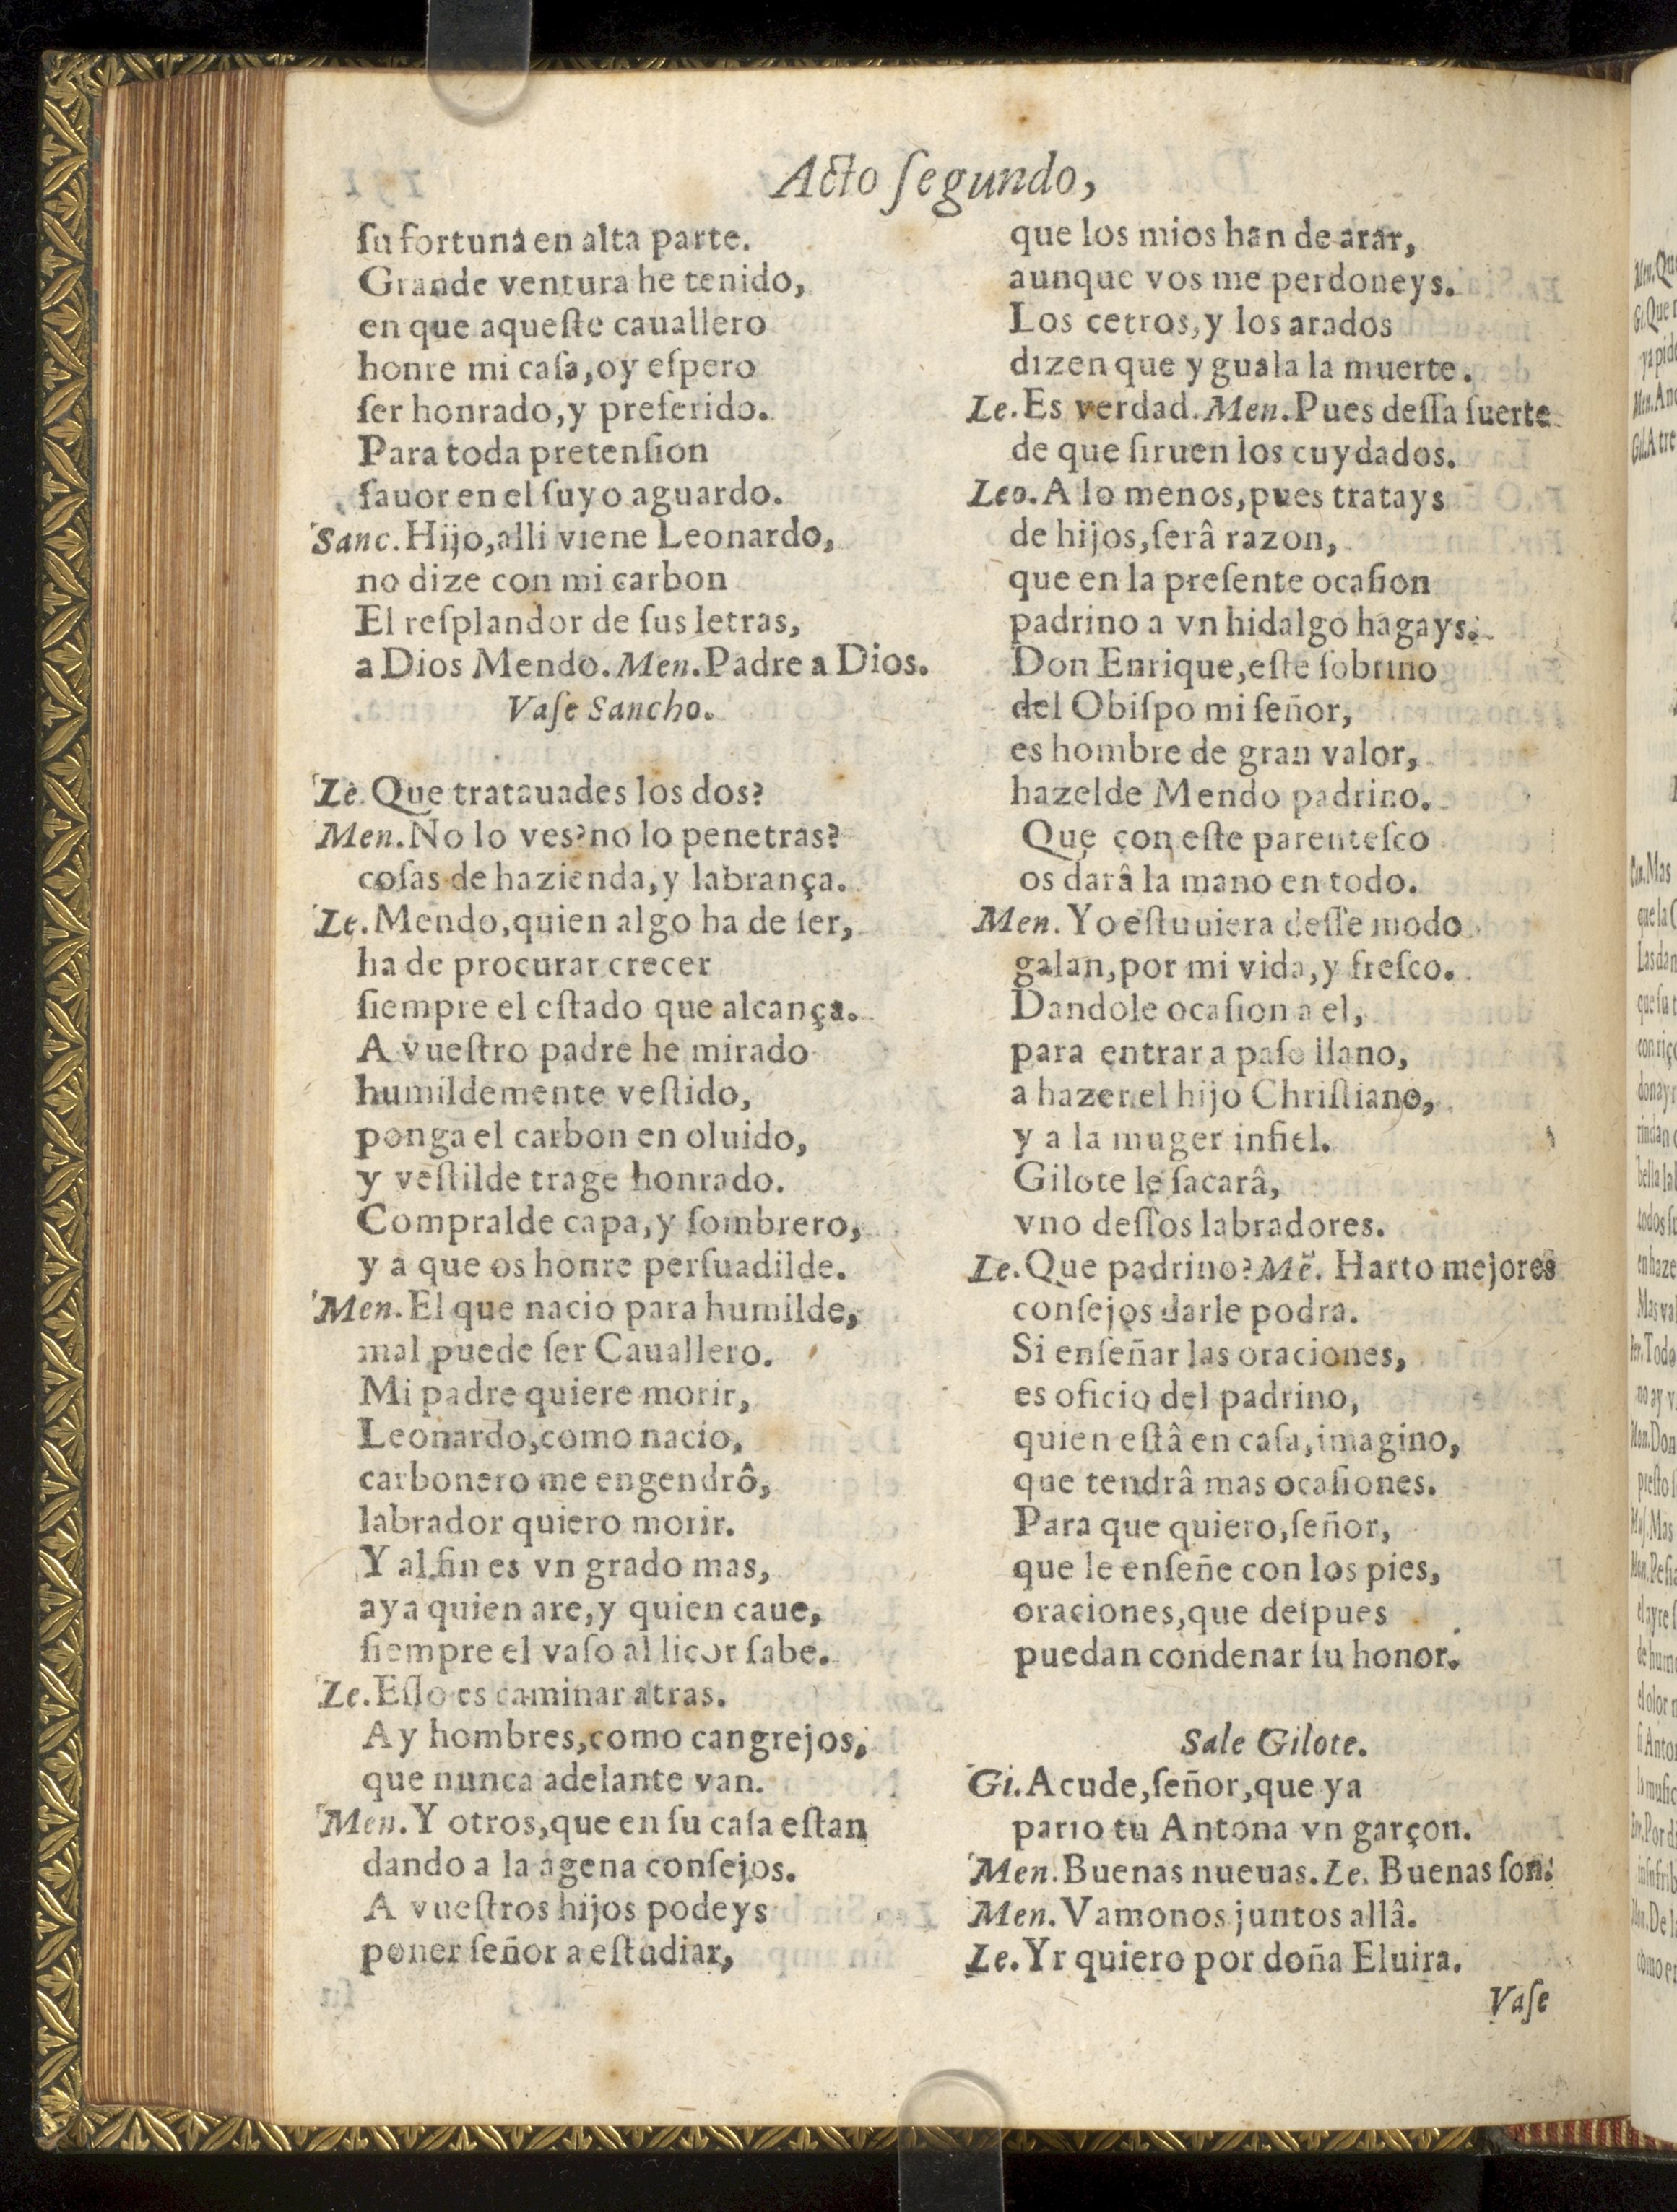 Acto ſegundo,
ſu fortuna en alta parte.
Grande ventura he tenido,
en que aqueſte cauallero
honre mi caſa, oy eſpero
ſer honrado, y preferido.
Para toda pretenſion
fauor en el ſuyo aguardo.
Sanc. Hijo, alli viene Leonardo,
no dize con mi carbon
El reſplandor de ſus letras,
a Dios Mendo. Men. Padre a Dios.
Vaſe Sancho.
Le. Que tratauades los dos?
Men. No lo ves? no lo penetras?
coſas de hazienda, y labrança.
Le. Mendo, quien algo ha de ſer,
ha de procurar crecer
ſiempre el eſtado que alcança.
A vueſtro padre he mirado
humildemente veſtido,
ponga el carbon en oluido,
y veſtilde trage honrado.
Compralde capa, y ſombrero,
y a que os honre perſuadilde.
Men. El que nacio para humilde,
mal puede ſer Cauallero.
Mi padre quiere morir,
Leonardo, como nacio,
carbonero me engendrô,
labrador quiero morir.
Y al fin es vn grado mas,
aya quien are, y quien caue,
ſiempre el vaſo al licor ſabe.
Le. Eſſo es caminar atras.
Ay hombres, como cangrejos,
que nunca adelante van.
Men. Y otros, que en ſu caſa eſtan
dando a la agena conſejos.
A vueſtros hijos podeys
poner ſeñor a eſtudiar,
que los mios han de arar,
aunque vos me perdoneys.
Los cetros, y los arados
dizen que yguala la muerte.
Le. Es verdad. Men. Pues deſſa ſuerte
de que ſiruen los cuydados.
Leo. A lo menos, pues tratays
de hijos, ſerâ razon,
que en la preſente ocaſion
padrino a vn hidalgo hagays.
Don Enrique, eſte ſobrino
del Obiſpo mi ſeñor,
es hombre de gran valor,
hazelde Mendo padrino.
Que con eſte parenteſco
os darâ la mano en todo.
Men. Yo eſtuuiera deſſe modo
galan, por mi vida, y freſco.
Dandole ocaſion a el,
para entrar a paſo llano,
a hazer el hijo Chriſtiano,
y a la muger infiel.
Gilote le ſacarâ,
vno deſſos labradores.
Le. Que padrino? Mẽ. Harto mejores
conſejos darle podra.
Si enſeñar las oraciones,
es oficio del padrino,
quien eſtâ en caſa, imagino,
que tendrâ mas ocaſiones.
Para que quiero, ſeñor,
que le enſeñe con los pies,
oraciones, que deſpues
puedan condenar ſu honor.
Sale Gilote.
Gi. Acude, ſeñor, que ya
pario tu Antona vn garçon.
Men. Buenas nueuas. Le. Buenas ſon.
Men. Vamonos juntos allâ.
Le. Yr quiero por doña Eluira.
Vaſe